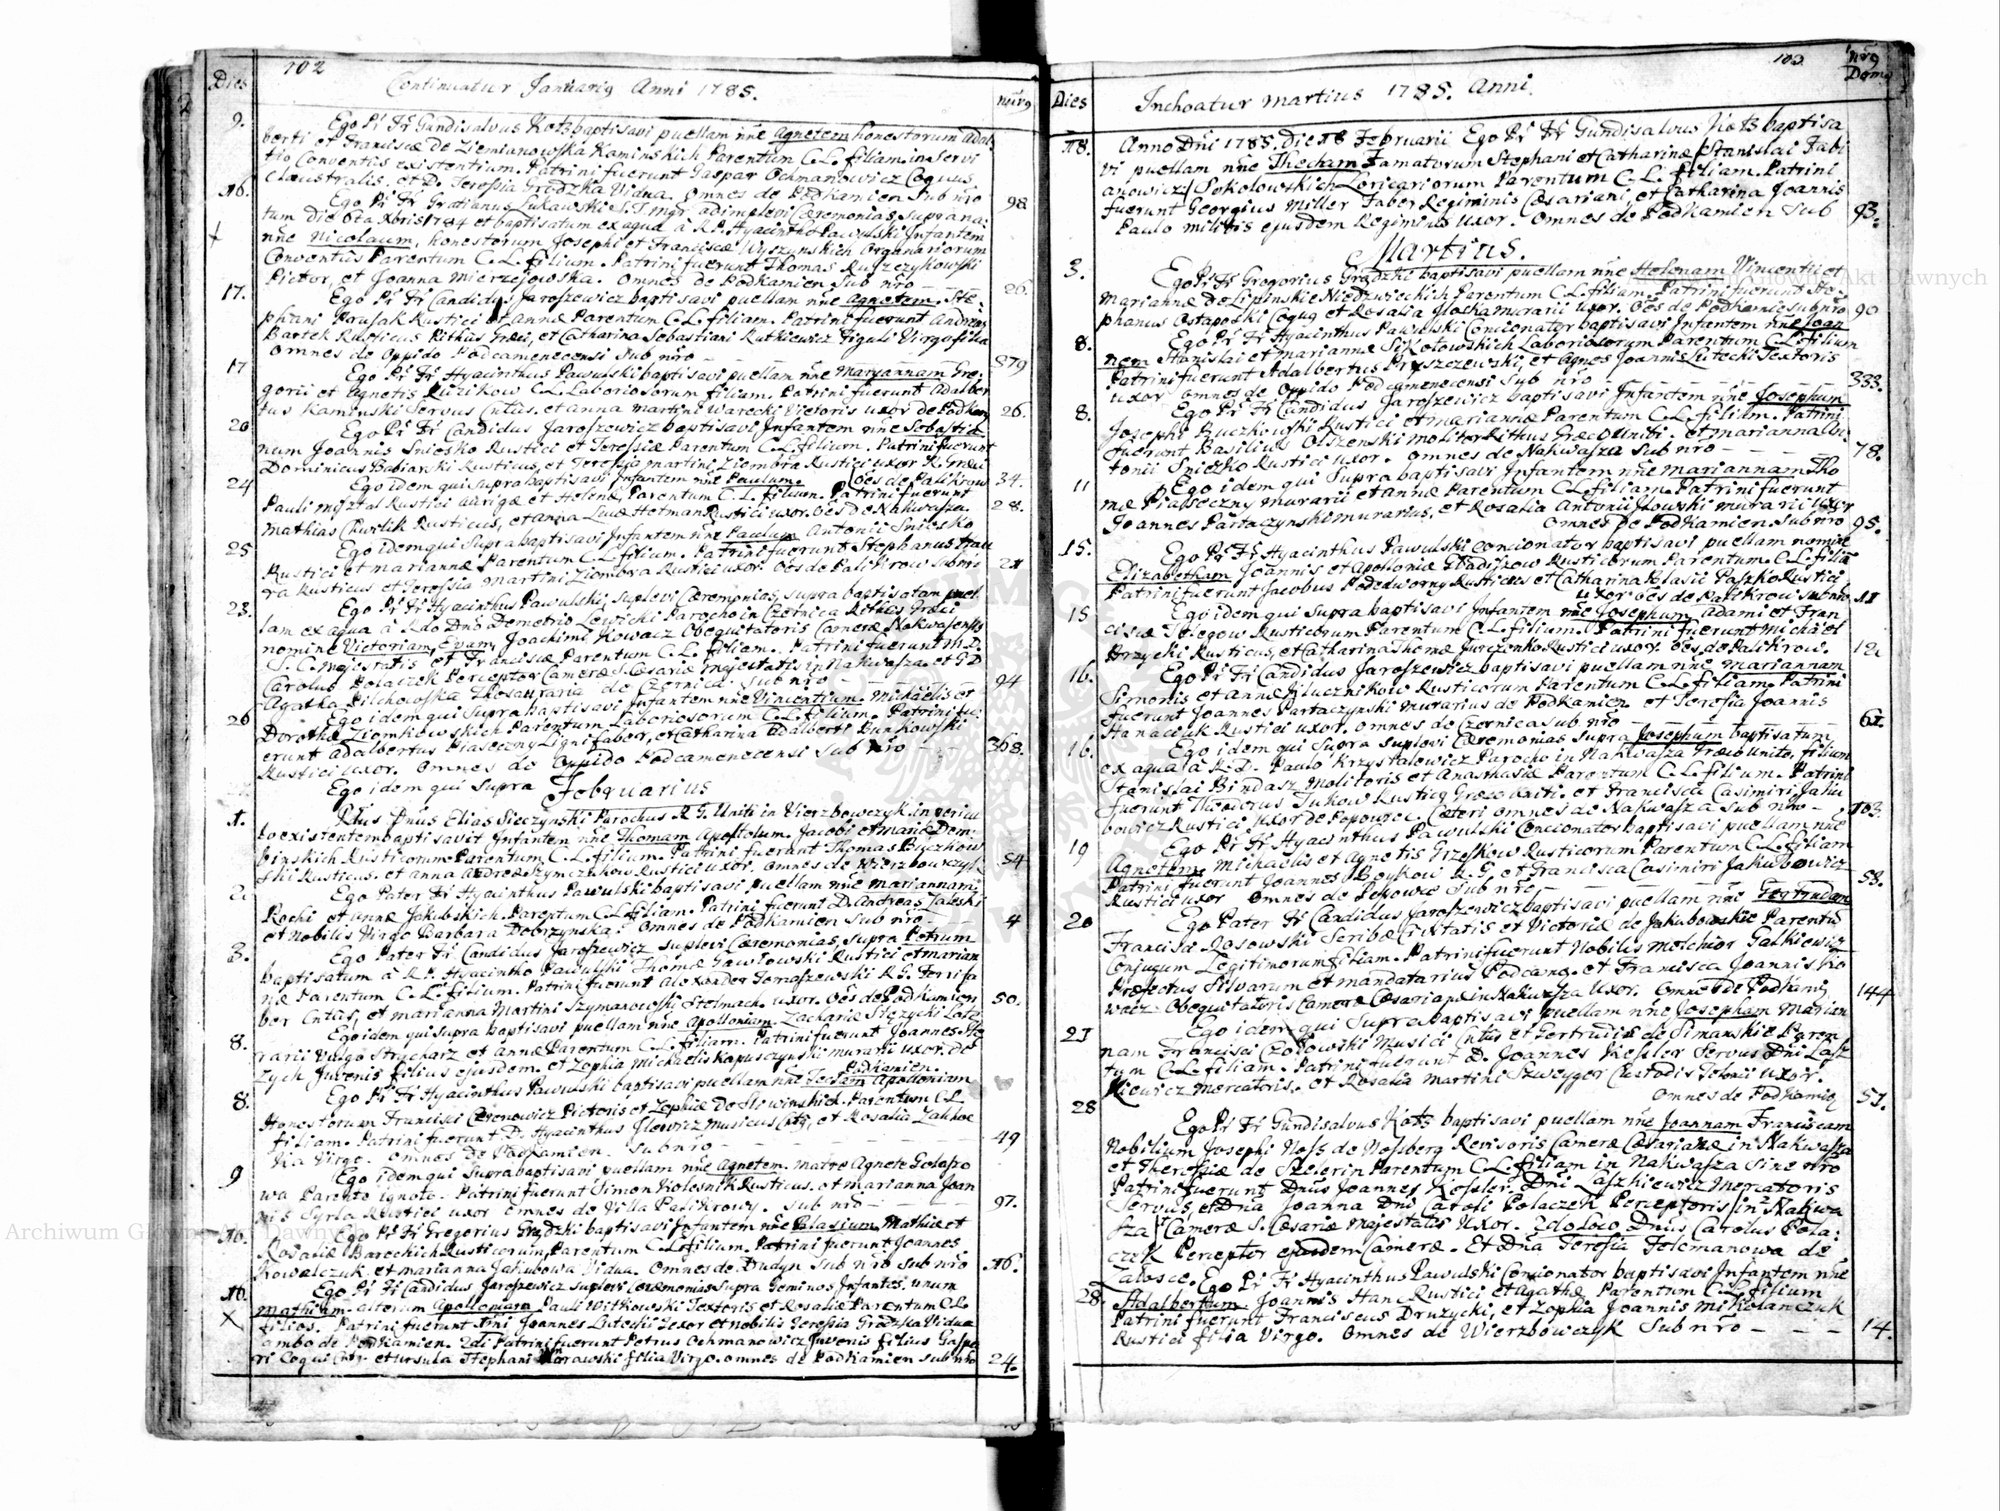 102
Dies
Continuatur Januarij Anni 1785.
nürg
9.
Ego Pr Fr Gundisalvus Kotz baptisavi puellam nñe Agnetem honestorum Adal
berti et Franciscæ de Ziemianowska Kaminskich Parentum C. L. filiam in servi
tio Conventûs existentium. Patrini fuerunt Gaspar Ochmanowicz Coquus
Claustralis, et D. Teressia Gradzka Vidua. Omnes de Podkamien Sub nro
98
16.
Ego Pr Fr Gratianus Łukawski S. T. mgr. adimplevi Cæremonias supra na:
tum die 6ta Xbris 1784 et baptisatum ex aqua à R. P. Hyacintho Pawulski Infantem
nñe Nicolaum, honestorum Josephi et Franciscæ Wyszynskich Organariorum
Conventûs Parentum C. L. filium. Patrini fuerunt Thomas Ruszczykowski
Pictor, et Joanna Mierzejowska. Omnes de Podkamien Sub nro
26.
17.
Ego Pr Fr Candidus Jaroszewicz baptisavi puellam nñe Agnetem. Ste:
phani Prusak Rustici et Annæ Parentum C. L. filiam. Patrini fuerunt Andreas
Bartek Rusticus Rithus Græci, et Catharina Sebastiani Rutkiewicz Figuli Virgo filia
Omnes de Oppido Podcamenecensi Sub nro
379
17
Ego Pr Fr Hyacinthus Pawulski baptisavi puellam nñe Maryannam Gre:
gorii et Agnetis Kuzikow C. L. Laboriosorum filiam. Patrini fuerunt Adalber
tus Kaminski Servus Cntûs. et Anna Martini Warecki Victoris uxor de Podkam
26.
20
Ego Pr Fr Candidus Jaroszewicz baptisavi Infantem nñe Sebastia
num Joannis Sniesko Rustici et Teressiæ Parentum C. L. filium. Patrini fuerunt
Dominicus Babianski Rusticus, et Teressia Martini Ziombra Rustici uxor R. Græci
Oes de Palikrow
34.
24
Ego idem qui Supra baptisavi Infantem nñe Paulum.
Pauli Rustici aurigæ et Helenæ Parentum C. L. filium. Patrini fuerunt
Mathias Rusticus, et Anna Lucæ Hetman Rustici uxor. Oes de Nakwasza.
28.
25
Ego idem qui Supra baptisavi Infantem nñe Paulum Antonii Sniesko
Rustici et Mariannæ Parentum C. L. filium. Patrini fuerunt Stephanus
ra Rusticus et Teressia Martini Ziombra Rustici uxor. Oes de Palikrow Sub nro
21
23.
Ego Pr Fr Hyacinthus Pawulski Suplevi Cæremonias supra baptisatam puel
lam ex aqua à Rdo Dno Demetrio Lewicki Parocho in Czernica Rithus Græci
nomine Victoriam Evam, Joachimi Kowacz Obequitatoris Cameræ Nakwasensis
S. C. Majestatis et Franciscæ Parentum C. L. filiam. Patrini fuerunt M. D.
Carolus Polaczek Perceptor Cameræ S. Cæsariæ Majestatis in Nakwasza. et G D
Agatha Pilchowska Thesauraria de Czernica. Sub nro
94
26
Ego idem qui Supra baptisavi Infantem nñe Vincentium. Michaelis et
Dorothæ Ziomkowskich Parentum Laboriosorum C. L. filium. Patrini fu:
erunt Adalbertus Piaseczny Ligni faber, et Catharina Adalberti Bunkowski
Rustici uxor. Omnes de Oppido Podcamenecensi Sub nro
368.
Ego idem qui Supra
Februarius
1.
Rdus Dnus Elias Sieczynski Parochus R. G. Uniti in Wierzbowczyk in pericu
lo existentem baptisavit Infantem nñe Thomam Apostolum. Jacobi et Mariæ Dem:
binskich Rusticorum Parentum C. L. filium. Patrini fuerunt Thomas Buczkow
ski Rusticus. et Anna Andreæ Szymczukow Rustici uxor. Omnes de Wierzbowczyk
54
2.
Ego Pater Fr Hyacinthus Pawulski baptisavi puellam nñe Mariannam.
Rochi et Annæ Jakubskich. Parentum C. L. filiam. Patrini fuerunt D. Andreas Jaleski
et Nobilis Virgo Barbara Dobrzynska. Omnes de Podkamien Sub nro
4
3.
Ego Pater Fr Candidus Jaroszewicz suplevi Cæremonias supra Petrum
baptisatum à R. P. Hyacintho Pawulski Thomæ Gawłowski Rustici et Marian
næ Parentum C. L. filium. Patrini fuerunt Alexander Tomaszewski R. G. Servi fa
ber Cntûs, et Marianna Martini Szymanowski Stelmach. uxor. Oes de Podkamien
50.
8.
Ego idem qui Supra baptisavi puellam nñe Apolloniam. Zachariæ Stezycki Late
rarii Vulgo Strycharz et Annæ Parentum C. L. filiam. Patrini fuerunt Joannes Ste
zych Juvenis filius ejusdem. et Zophia Michaelis Kopuszczynski murarii uxor. de
Podkamien.
8.
Ego Pr Fr Hyacinthus Pawulski baptisavi puellam nñe Teclam Apolloniam
Honestorum Francisci Cerenowicz Pictoris et Zophiæ de Slowinskich. Parentum C. L.
filiam. Patrini fuerunt D. Hyacinthus Jlewicz Musicus Cntûs, et Rosalia Zakhoc
kia Virgo. Omnes de Podkamien. Sub nro
49
9
Ego idem qui Supra baptisavi puellam nñe Agnetem. matre Agnete Golaszo
wa Parente ignoto. Patrini fuerunt Simon Kolesnik Rusticus. et Marianna Joan
nis Syrla Rustici uxor omnes de Villa Palikrowy. Sub nro
97.
10.
Ego Pr Fr Gregorius Gradzki baptisavi Infantem nñe Blasium Mathiæ et
Rosaliæ Bareckich Rusticorum Parentum C. L. filium. Patrini fuerunt Joannes
Kowalczuk. et Marianna Jakubowa Vidua. Omnes de Dudyn Sub nro sub nro
16.
10.
Ego Pr Fr Candidus Jaroszewicz suplevi Cæremonias supra Geminos Infantes. unum
Mathiam. alterum Apolloniam Pauli Witkowski Textoris et Rosaliæ Parentum C. L.
filios. Patrini fuerunt 1mi Joannes Lutecki Textor et Nobilis Teressia Gradzka Vidua
ambo de Podkamien. 2di Patrini fuerunt Petrus Ochmanowicz Juvenis filius Gaspa
ri Coqui Cntûs. et Ursula Stephani Morawski filia Virgo. omnes de Podkamien Sub nro
24.
103.
Dies
Inchoatur Martius 1785. Anni.
nrg
Domg
18.
Anno Dni 1785. Die 18 Februarii Ego Pr Fr Gundisalvus Kotz baptisa
vi puellam nñe Theclam Famatorum Stephani et Catharinæ Stanislai Fabi
anowicz Sokolowskich Loricariorum Parentum C. L. filiam. Patrini
fuerunt Georgius Miller Faber Regiminis Cæsariani, et Catharina Joannis
Paulo militis ejusdem Regiminis Uxor. Omnes de Podkamien Sub
93.
Martius.
3.
Ego Pr Fr Gregorius Gradzki baptisavi puellam nñe Helenam Vincentii et
Mariannæ de Lipinskie Niedzwieckich Parentum C. L. filiam. Patrini fuerunt Ste
phanus Ostapowski Coqug et Rosalia Jlocka murarii uxor. Oes de Podkamie sub nro
90
8.
Ego Pr Fr Hyacinthus Pawulski Concionator baptisavi Infantem nñe Joan
nem Stanislai et Mariannæ Sikołowskich Laboriosorum Parentum C. L. filium
Patrini fuerunt Adalbertus Pryszczewski, et Agnes Joannis Lutecki Textoris
uxor omnes de Oppido Podcamenecensi Sub nro
333.
8.
Ego Pr Fr Candidus Jaroszewicz baptisavi Infantem nñe Josephum
Josephi Buczkowski Rustici et Mariannæ Parentum C. L. filium. Patrini
fuerunt Basilius Olszenski molitor Rithus Græco Uniti. et Marianna An
tonii Sniezko Rustici uxor. Omnes de Nakwasza Sub nro
78.
11
Ego idem qui Supra baptisavi Infantem nñe Mariannam Tho
mæ Piaseczny Murarii et Annæ Parentum C. L. filiam. Patrini fuerunt
Joannes Partaczynski murarius, et Rosalia Antonii Jlowski murarii Uxor
Omnes de Podkamien. Sub nro
95.
15.
Ego Pr Fr Hyacinthus Pawulski Concionator baptisavi puellam nomine
Elizabetham Joannis et Apolloniæ Gladiszow Rusticorum Parentum C. L. filiã
Patrini fuerunt Jacobus Podedworny Rusticus et Catharina Blasii Paszko Rustici
uxor Oes de Palikrow Sub nro
11
15
Ego idem qui Supra baptisavi Infantem nñe Josephum Adami et Fran
ciscæ Telegow Rusticorum Parentum C. L. filium. Patrini fuerunt Michael
Brzycki Rusticus, et Catharina Thomæ Jurczenko Rustici uxor. Oes de Palikrow.
12
16.
Ego Pr Fr Candidus Jaroszewicz baptisavi puellam nñe Mariannam
Simonis et Annæ Hlucznikow Rusticorum Parentum C. L. filiam. Patrini
fuerunt Joannes Partaczynski Murarius de Podkamien et Teresia Joannis
Hanaciuk Rustici uxor. Omnes de Czernica sub nro
61.
16.
Ego idem qui Supra suplevi Cæremonias Supra Josephum baptisatum
ex aqua à R. D. Paulo Krzystalowicz Parocho in Nakwasza Græco Unito, filium
Stanislai Bindasz Molitoris et Anasthasiæ Parentum C. L. filium. Patrini
fuerunt Theodorus Sukow Rusticg Græco Uniti. et Francisca Casimiri Jaku
bowicz Rustici uxor de Popowce. Cæteri omnes de Nakwasza Sub nro
103.
19
Ego Pr Fr Hyacinthus Pawulski Concionator baptisavi puellam nñe
Agnetem Michaelis et Agnetis Grzeskow Rusticorum Parentum C. L. filiam
Patrini fuerunt Joannes Beykow R. G. et Francisca Casimiri Jakubowicz
Rustici uxor Omnes de Popowce Sub nro
58.
20
Ego Pater Fr Candidus Jaroszewicz baptisavi puellam nñe Gertrudam
Francisci Rosowski Scribæ Civitatis et Victoriæ de Jakubowskie Parentũ
Conjugum Legitimorum filiam. Patrini fuerunt Nobilis Melchior Galkiewicz
Præfectus Silvarum et mandatarius Podcamg. et Francisca Joannis Ko
wacz Obequitatoris Cameræ Cæsariane in Nakwasza Uxor. Omnes de Podkamij
144
21
Ego idem qui Supra baptisavi puellam nñe Josepham Marian
nam Francisci Czolowski Musici Cntûs et Gertrudis de Simanskie Paren
tum C. L. filiam. Patrini fuerunt D. Joannes Kessler Servus Dni Lasz
kiewicz Mercatoris. et Rosalia Martini Szweyger Custodis Telonii uxor.
Omnes de Podkamie
51.
28
Ego Pr Fr Gundisalvus Kotz baptisavi puellam nñe Joannam Franciscam
Nobilium Josephi Hess de Hessberg Revisoris Cameræ Cæsarianæ in Nakwasza
et Theressiæ de Szelerin Parentum C. L. filiam in Nakwasza Sine nro
Patrini fuerunt Dnus Joannes Kessler. Dni Laszkiewicz Mercatoris
Servus, et Dna Joanna Dni Caroli Polaczek Perceptoris in Nakwa
sza Cameræ S. Cæsariæ Majestatis Uxor. 2do loco Dnus Carolus Pola:
czek Perceptor ejusdem Cameræ. Et Dna Teresia Telemanowa de
Zalosce.
28.
Ego Pr Fr Hyacinthus Pawulski Concionator baptisavi Infantem nñe
Adalbertum Joannis Hanc Rustici et Agathæ Parentum C. L. filium
Patrini fuerunt Franciscus Druzycki, et Zophia Joannis Mikolanczuk
Rustici filia Virgo. Omnes de Wierzbowczyk Sub nro
14.
Archiwum Główne Akt Dawnych
Archiwum Główne Akt Dawnych